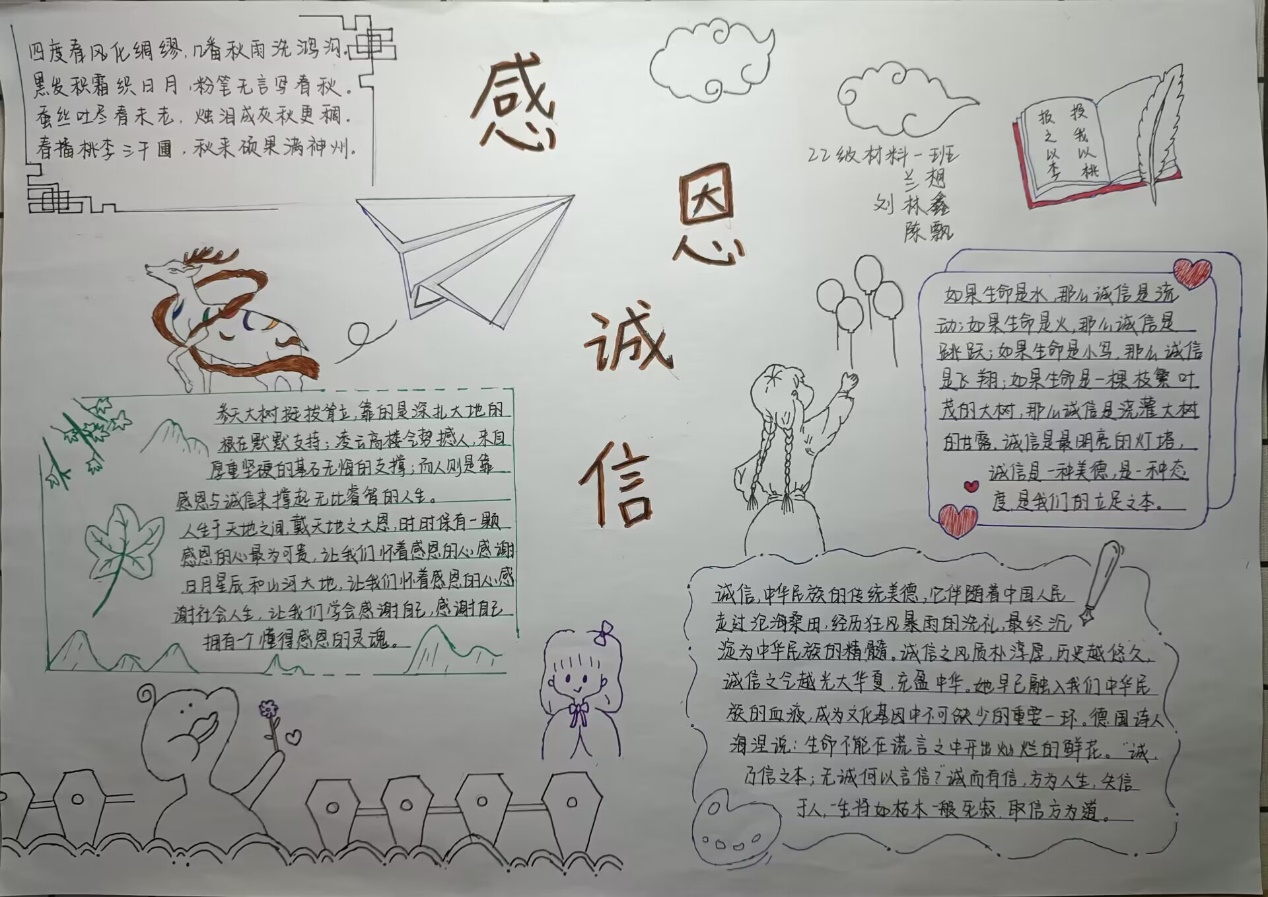 四度春风化绸缪，几番秋雨洗鸿沟。
黑发积霜织日月，粉笔无言写春秋。
蚕丝吐尽春未老，烛泪成灰秋更稠。
春播桃李三千圃，秋来硕果满神州。
感
恩
诚
信
22级材料一班
兰想
刘林鑫
陈飘
投我以桃
报之以李
如果生命是水，那么诚信是流
动；如果生命是火，那么诚信是
跳跃；如果生命是小鸟，那么诚信
是飞翔；如果生命是一棵枝繁叶
茂的大树，那么诚信是浇灌大树
的甘露。诚信是最明亮的灯塔，
诚信是一种美德，是一种态
度，是我们的立足之本。
参天大树挺拔耸立，靠的是深扎大地的
根在默默支持；凌云高楼气势撼人，来自
厚重坚硬的基石无悔的支撑；而人则是靠
感恩与诚信来撑起无比睿智的人生。
人生于天地之间，戴天地之大恩，时时保有一颗
感恩的心最为可贵，让我们怀着感恩的心感谢
日月星辰和山河大地，让我们怀着感恩的心感
谢社会人生，让我们学会感谢自己，感谢自己
拥有个懂得感恩的灵魂。
诚信，中华民族的传统美德，它伴随着中国人民
走过沧海桑田，经历狂风暴雨的洗礼，最终沉
淀为中华民族的精髓。诚信之风质朴淳厚，历史越悠久，
诚信之气越光大华夏，充盈中华。她早已融入我们中华民
族的血液，成为文化基因中不可缺少的重要一环。德国诗人
海涅说：生命不能在谎言之中开出灿烂的鲜花。“诚，
乃信之本；无诚何以言信？”诚而有信，方为人生，失信
于人，一生将如枯木一般死寂，取信方为道。